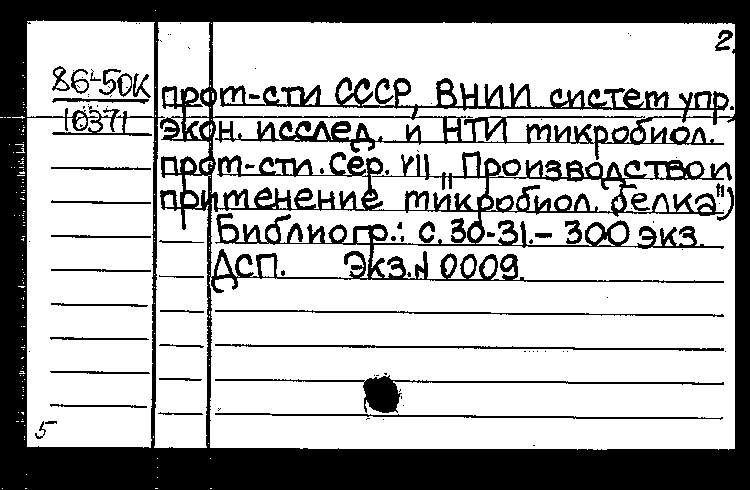 2.
86-50К
10371
пром-сти СССР, ВНИИ систем упр.,
экон. исслед. и НТИ микробиол.
пром-сти. Сер. VII „Производство и
применение микробиол. белка")
Библиогр.: с. 30-31. – 300 экз.
ДСП. Экз. N 0009.
5